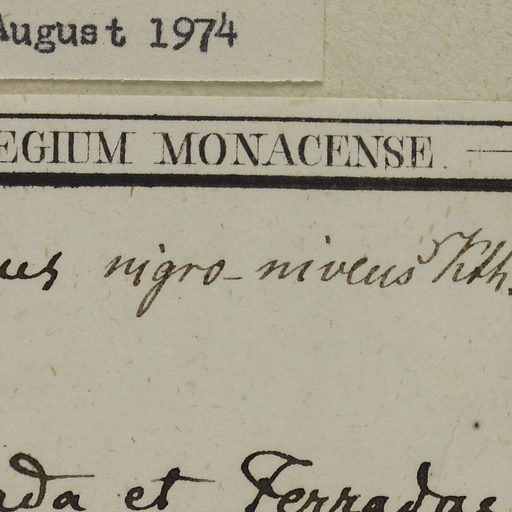 August 1974
EGIUM MONACENSE
us nigro-niveus Kth.
da et Ferradas